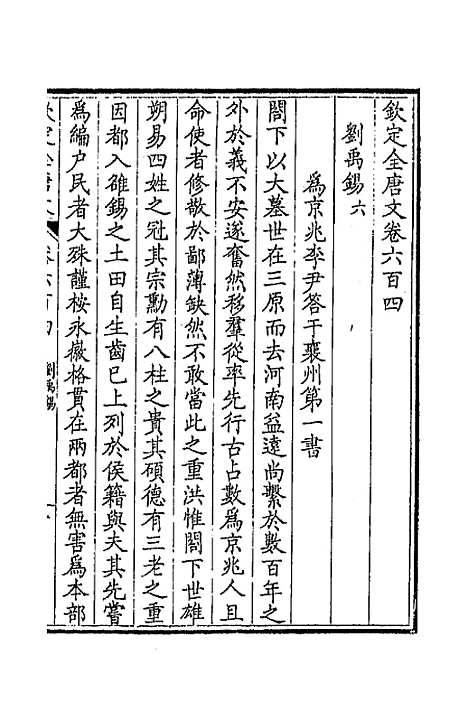 欽定全唐文卷六百四
劉禹錫六
爲京兆李尹答于襄州第一書
閤下以大墓世在三原而去河南益遠尚繫於數百年之
外於義不安遂奮然移羣從率先行古占數爲京兆人且
命使者修敬於鄙薄缺然不敢當此之重洪惟閤下世雄
朔易四姓之冠其宗勳有八柱之貴其碩德有三老之重
因都入雒錫之土田自生齒已上列於侯籍與夫其先嘗
爲編户民者大殊謹桉永徽格貫在兩都者無害爲本部
劉禹錫